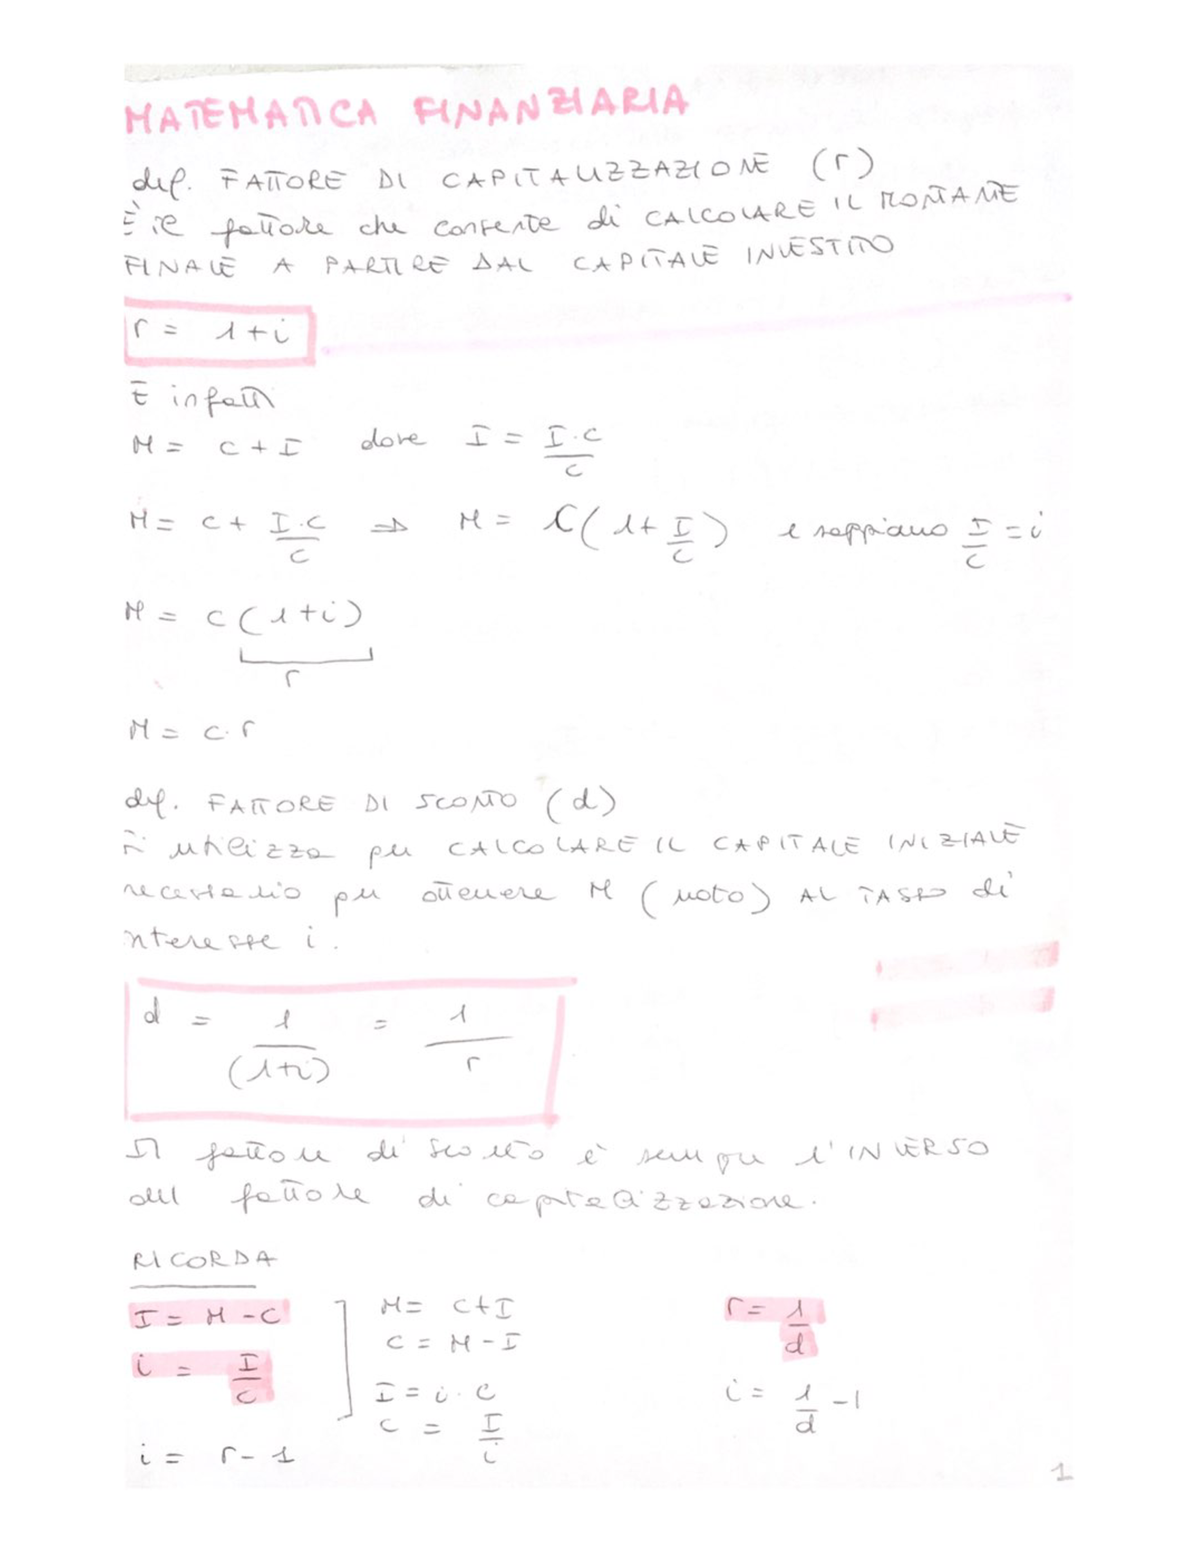 MATEMATICA FINANZIARIA
def. FATTORE DI CAPITALIZZAZIONE (r)
È il fattore che consente di CALCOLARE IL MONTANTE
FINALE A PARTIRE DAL CAPITALE INVESTITO
r = 1+i
E infatti
M = C + I dove I = I·C/C
M = C + I·C/C ⇒ M = C(1+ I/C) e sappiamo I/C = i
M = C (1+i)
r
M = C·r
def. FATTORE DI SCONTO (d)
Si utilizza per CALCOLARE IL CAPITALE INIZIALE
necessario per ottenere M (noto) AL TASSO di
interesse i.
d = 1/(1+i) = 1/r
Il fattore di sconto è sempre l'INVERSO
del fattore di capitalizzazione.
RICORDA
I = M - C
i = I/C
i = r - 1
M = C+I
C = M - I
I = i · C
C = I/i
r = 1/d
i = 1/d - 1
1